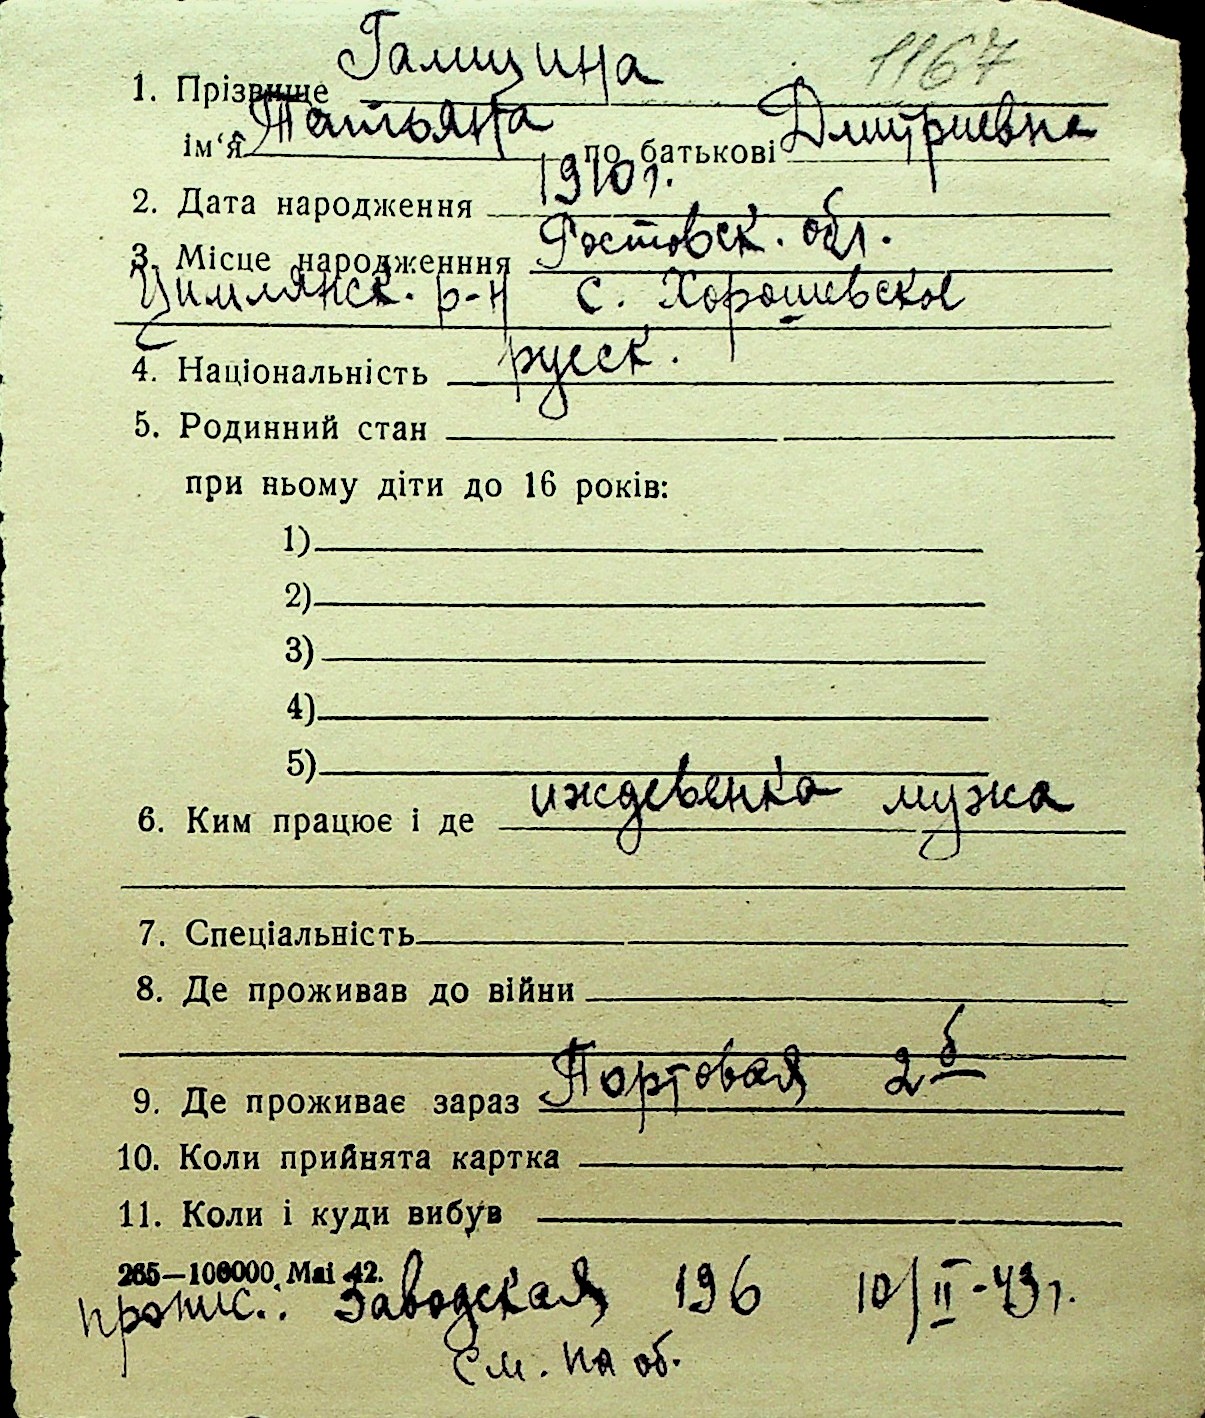 1167
1. Прізвище Галицина
ім‘я Татьяна по батькові Дмитриевна
2. Дата народження 1910 г.
3. Місце народженння Ростовск. обл.
Цимлянск. р-н с. Хорошевское
4. Національність русск.
5. Родинний стан
при ньому діти до 16 років:
1)
2)
3)
4)
5)
6. Ким працює і де иждевенка мужа
7. Спеціальність
8. Де проживав до війни
9. Де проживає зараз Портовая 2 б
10. Коли прийнята картка
11. Коли і куди вибув
265—100000 Mai 42.
пропис.: Заводская 196 10/II-43 г.
См. на об.